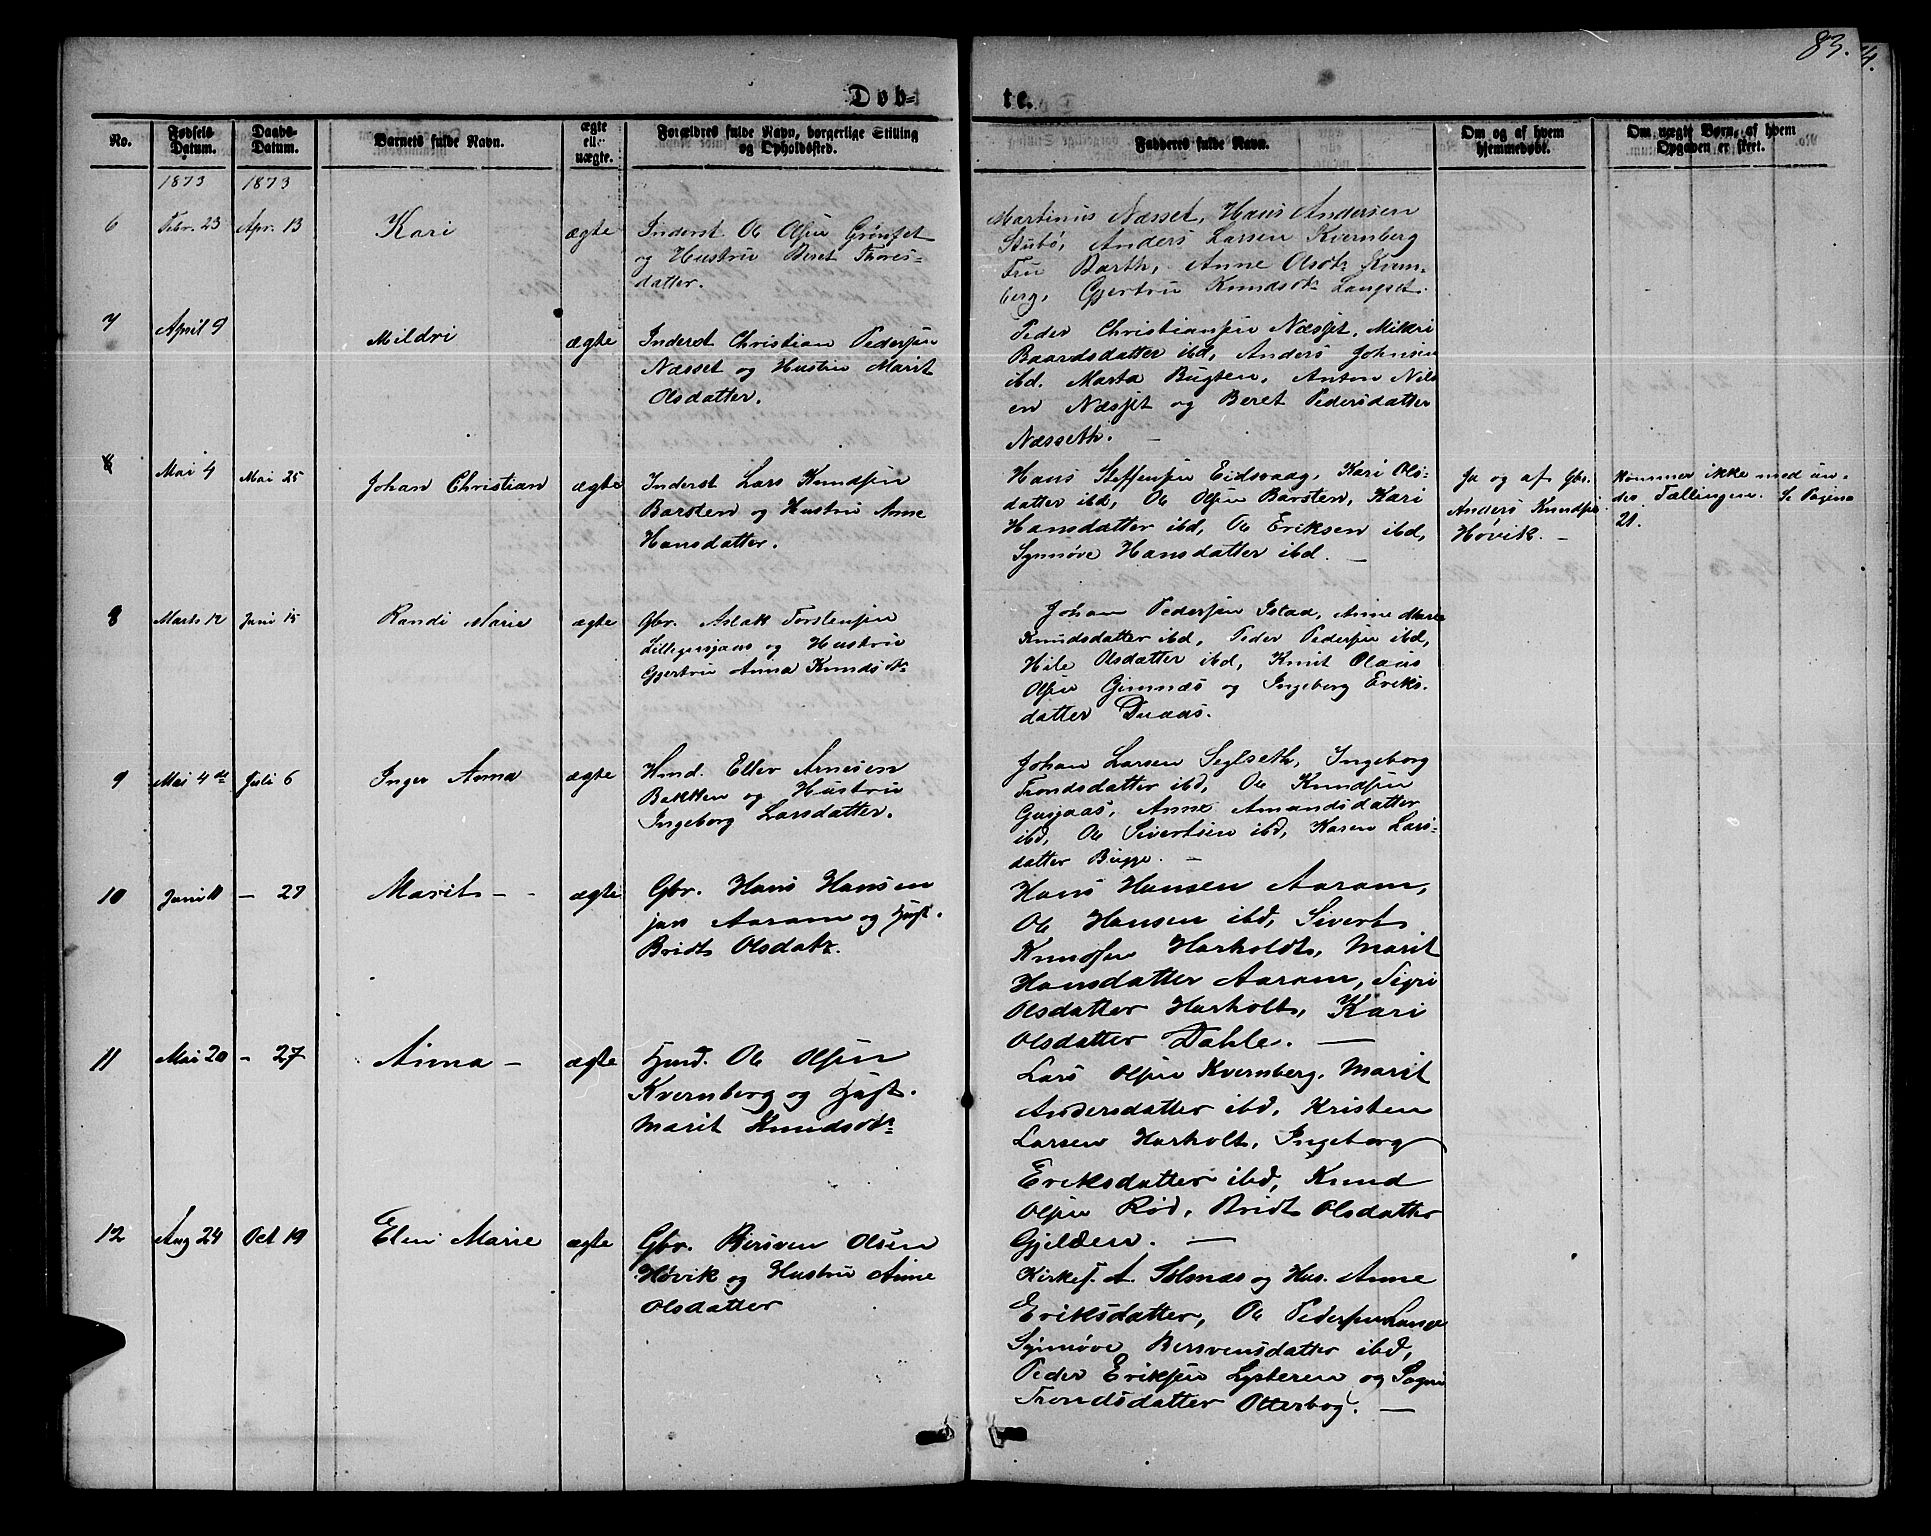 83.
4.
Døb-
te.
No.
Fødsels Datum.
Daabs-Datum.
Barnets fulde Navn.
ægte elle uægte.
Forældres fulde Navn, borgerlige Stilling og Opholdssted.
Fadderes fulde Navn.
Om og af hvem hjemmedøbt.
Om uægte Børn, af hvem Opgaven er skeet.
1873
1873
6
Febr. 23
Apr. 13
Kari
ægte
Inderst Ole Olsen Grønset
og Hustru Beret Thores-
datter.
Martinus Næsset, Hans Andersen
Stubø, Anders Larsen Kvernberg
Fru Barth, Anne Olsdtr Kvern-
berg, Gjertru Knudsdtr Langset.
7
April 9
Mildri
ægte
Inderst Christian Pedersen
Næsset og Hustru Marit
Olsdatter.
Peder Christiansen Næsset, Mildri
Baardsdatter ibd, Anders Johnsen
ibd. Marta Bugten, Anton Nils
en Næsset og Beret Pedersdatter
Næsseth.
Mai 4
Mai 25
Johan Christian
ægte
Inderst Lars Knudsen
Barsten og Hustru Anne
Hansdatter.
Hans Steffensen Eidsvaag, Kari Ols-
datter ibd, Ole Olsen Barsten, Kari
Hansdatter ibd, Ole Eriksen ibd,
Synnøve Hansdatter ibd. —
Ja og af Gbr.
Anders Knudsen
Høvik. —
Kommer ikke med un-
der Tællingen. Se Pagina
21.
8
Marts 12
Juni 15
Randi Marie
ægte
Gbr. Aslak Torstensen
Lillegusjaas og Hustru
Gjertru Anna Knudsdtr
Johan Pedersen Istad, Anne Marie
Knudsdatter ibd, Peder Pedersen ibd,
Hile Olsdatter ibd, Knut Olaus
Olsen Gimnæs og Ingeborg Eriks-
datter Duaas.
9
Mai 4de
Juli 6
Inger Anna
ægte
Hmd. Eller Arnesen
Bakken og Hustru
Ingeborg Larsdatter.
Johan Larsen Seglseth, Ingeborg
Trondsdatter ibd, Ole Knudsen
Gusjaas, Anne Amundsdatter
ibd, Ole Sivertsen ibd, Karen Lars-
datter Bugge. —
10
Juni 11
— 27
Marit - -
ægte
Gbr. Hans Hansen
jun Aaram og Hust.
Bridt Olsdatr.
Hans Hansen Aaram,
Ole Hansen ibd, Sivert
Knudsen Harholdt, Marit
Hansdatter Aaram, Sigri
Olsdatter Harholt, Kari
Olsdatter Dahle. —
11
Mai 20
- 27
Anna -
ægte
Hmd. Ole Olsen
Kvernberg og Hust.
Marit Knudsdtr
Lars Olsen Kvernberg, Marit
Andersdatter ibd, Kristen
Larsen Harholt, Ingeborg
Eriksdatter ibd, Knud
Olsen Rød, Bridt Olsdatter
Gjelden. —
12
Aug 24
Oct 19
Elen Marie
ægte
Gbr. Bersven Olsen
Høvik og Hustru Anne
Olsdatter
Kirkes. A. Solsnæs og Hus. Anne
Eriksdatter, Ole Pedersen Lange
Synnøve Bersvensdatter ibd,
Peder Eriksen Lysteren og Sogni
Trondsdatter Otterbog. —